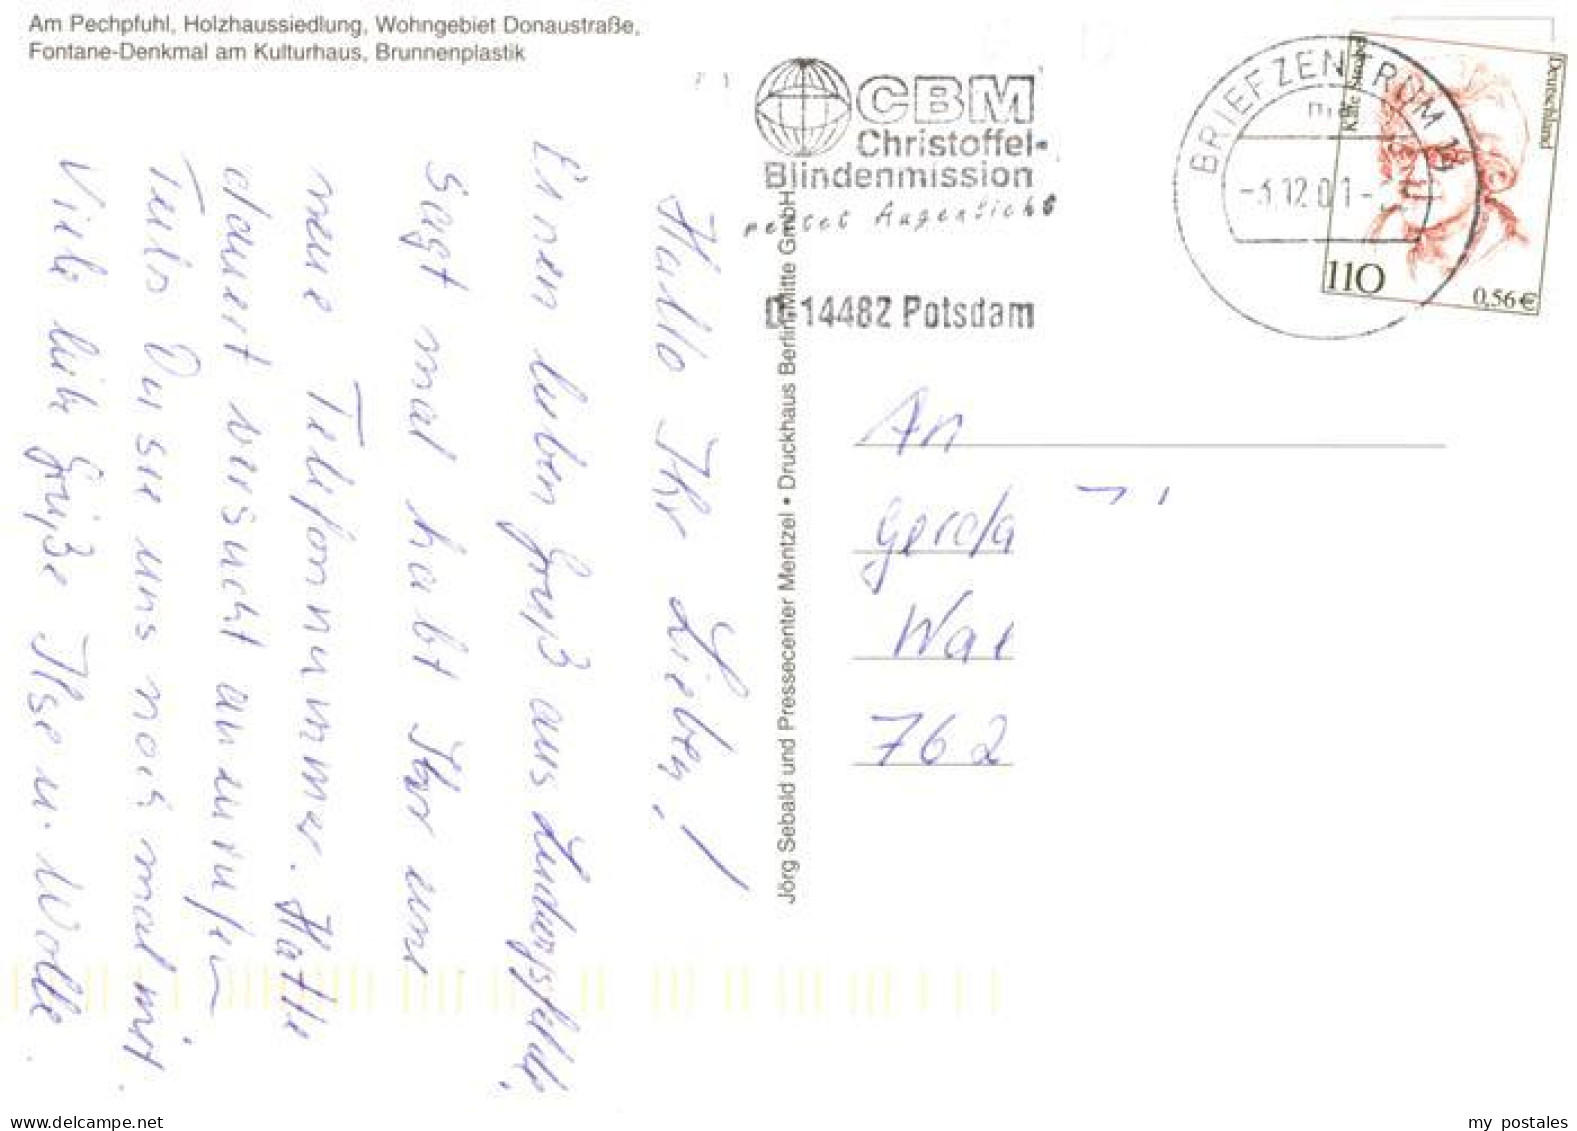 Am Pechpfuhl, Holzhaussiedlung, Wohngebiet Donaustraße,
Fontane-Denkmal am Kulturhaus, Brunnenplastik
CBM
Christoffel-
Blindenmission
rettet Augenlicht
D-14482 Potsdam
BRIEFZENTRUM 14
-3.12.01-
Käte Strobel
Deutschland
110
0,56€
Hallo Ihr Lieben!
Einen lieben Gruß aus
Sagt mal habt Ihr eine
neue Telefonnummer. Hatte
dauert versucht anzurufen
Teils Du sie uns noch mal mit.
Viele liebe Grüße Ilse u. Wolle.
Jörg Sebald und Pressecenter Mentzel • Druckhaus Berlin-Mitte GmbH
An
Gerda
762
my postales